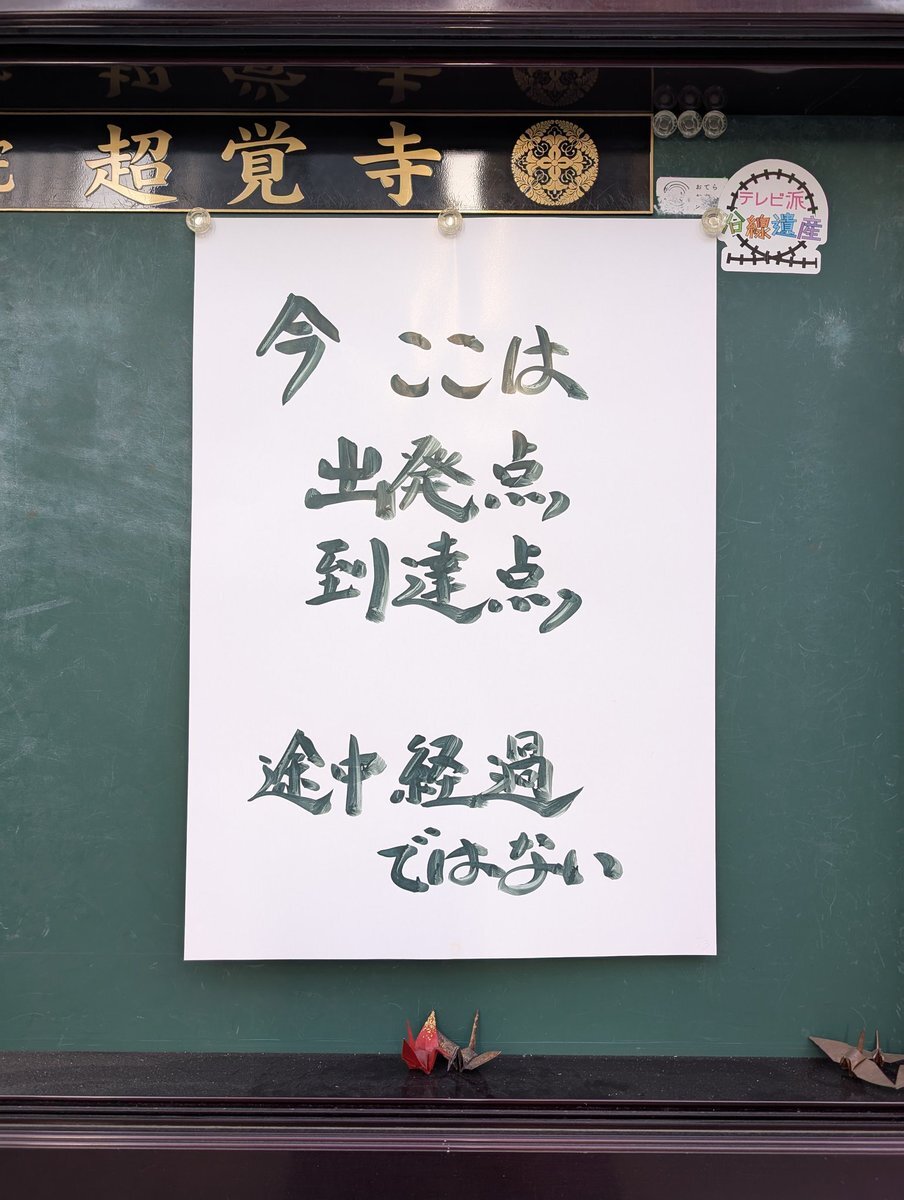 超覚寺
おてら
テレビ派
沿線遺産
今 ここは
出発点
到達点
途中経過
ではない